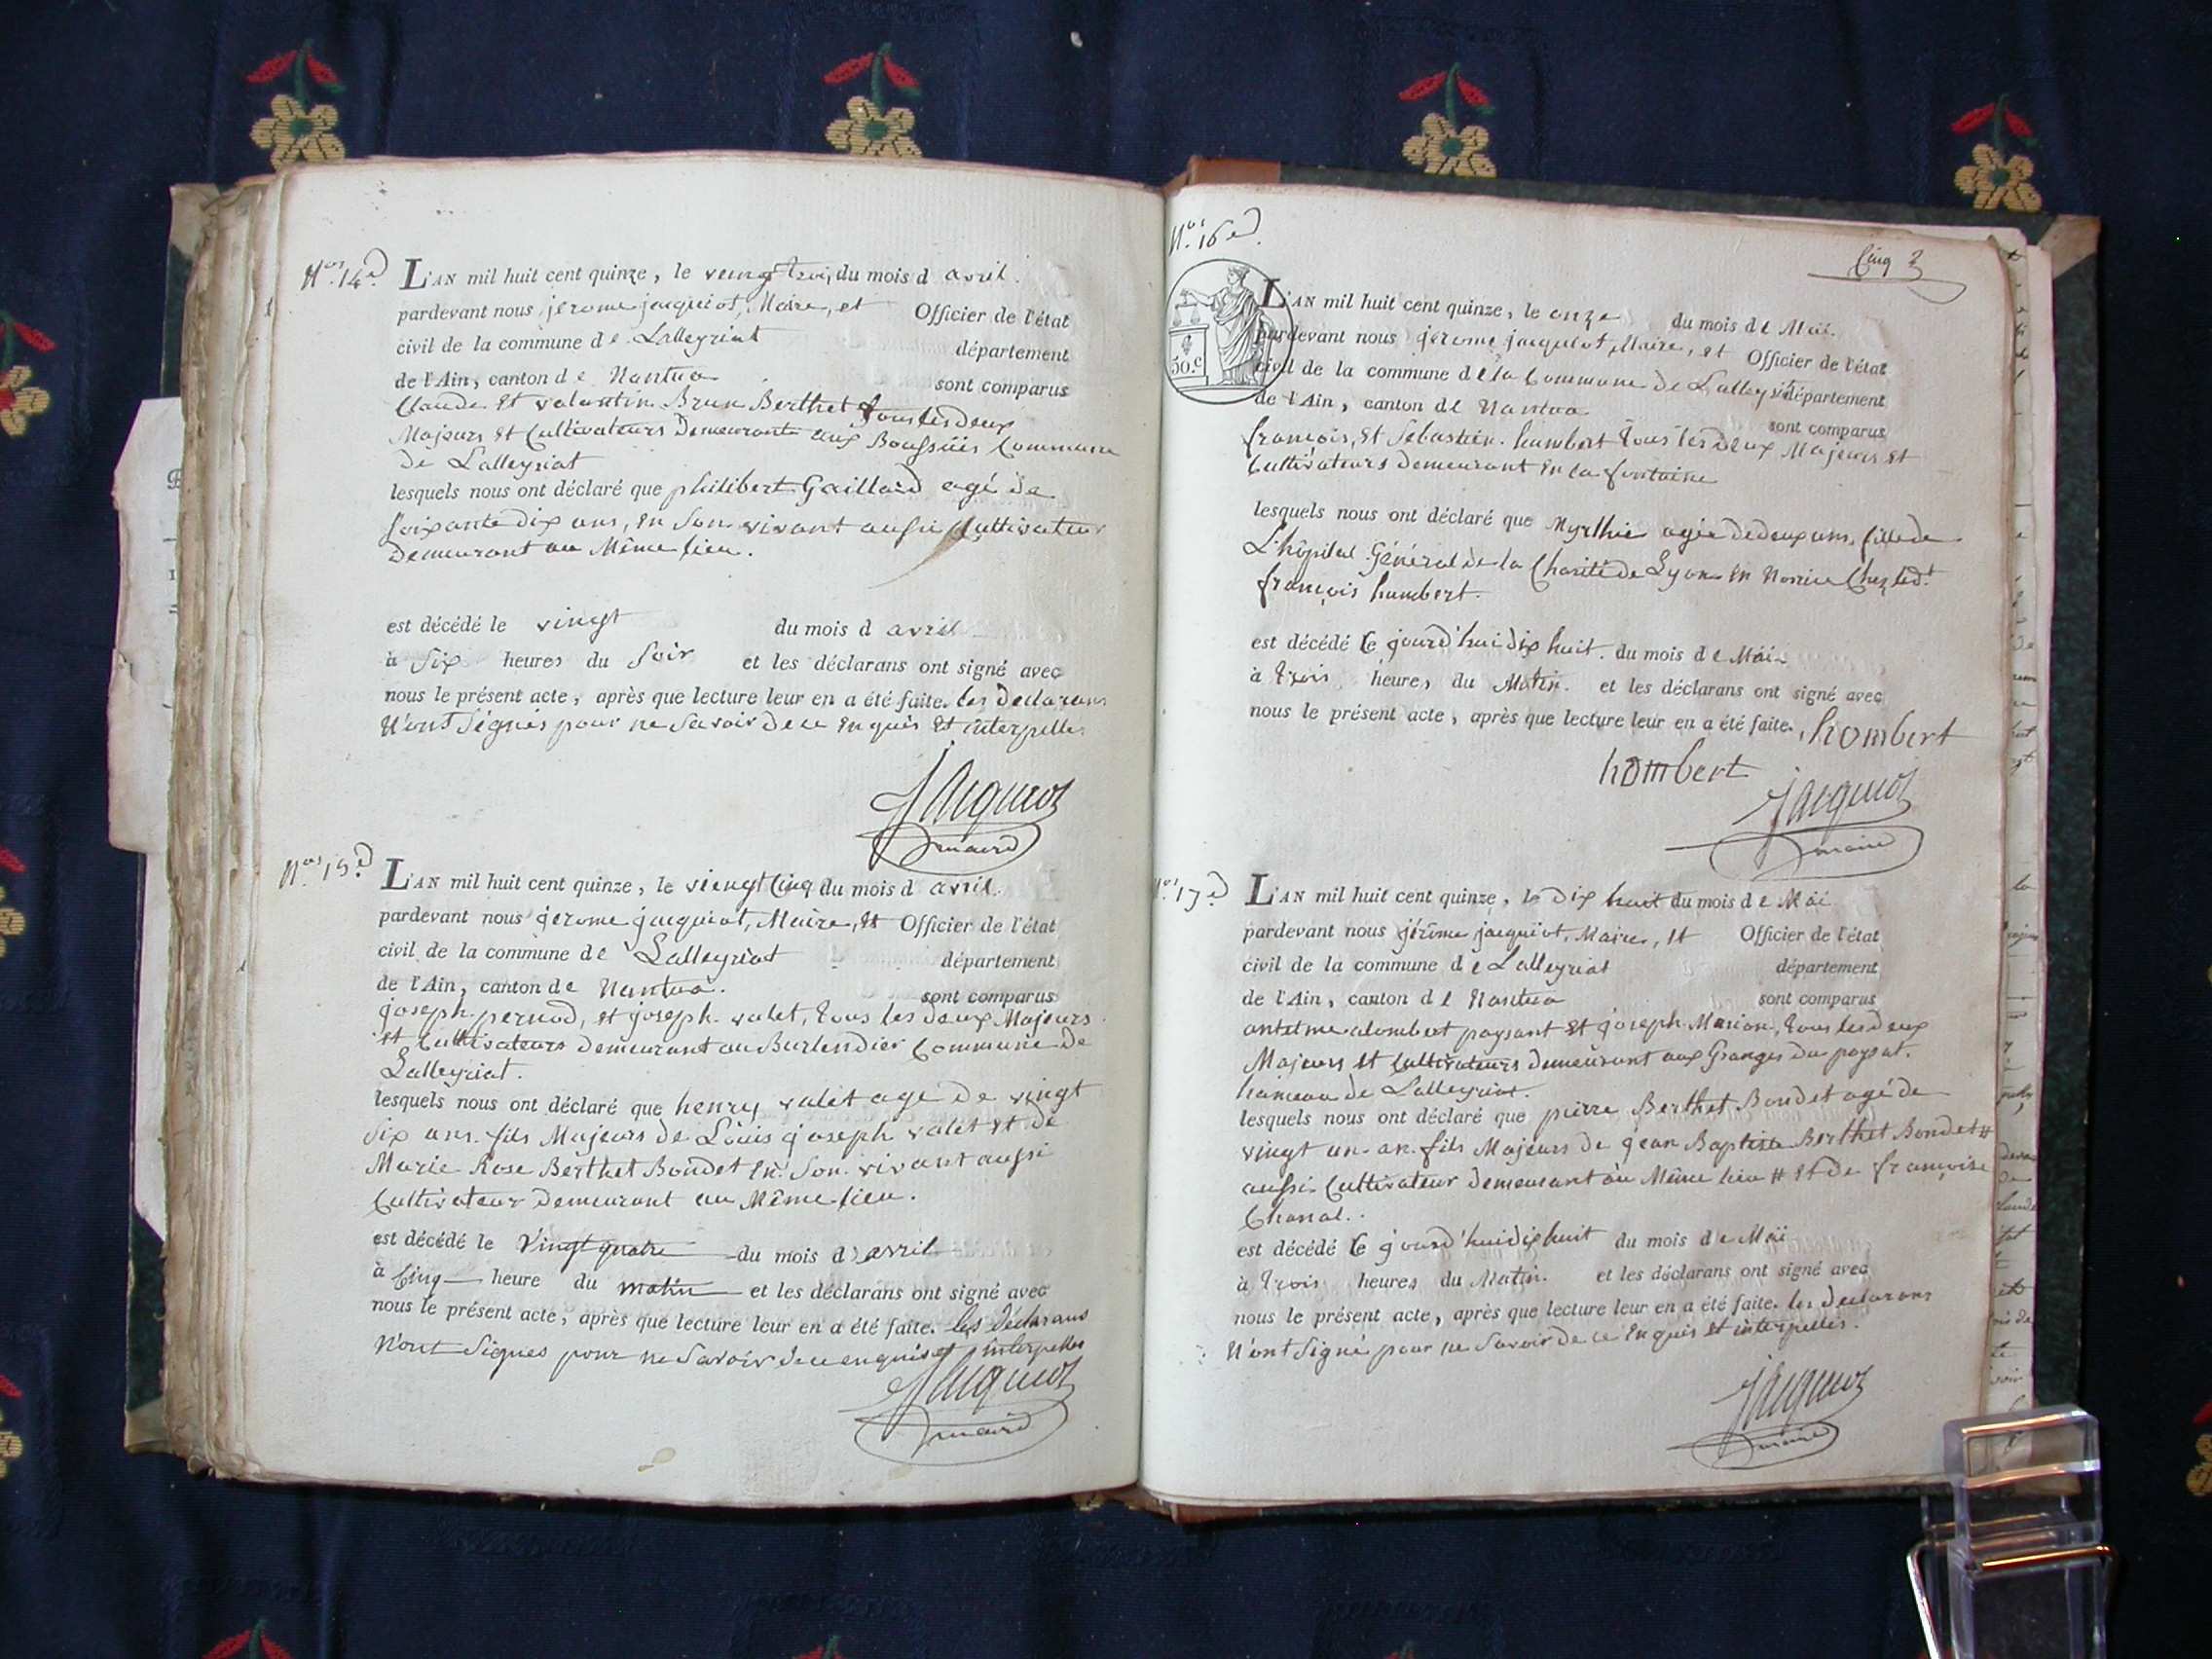 Nos 14e.
L'AN mil huit cent quinze, le veingt trois du mois d avril.
pardevant nous jerome jacquiot, Maire, et Officier de l'état
civil de la commune de Lalleyriat département
de l'Ain, canton de Nantua sont comparus
Claude Et valantin Brun Berthet tous les deux
Majeurs Et Cultivateurs Demeurants aux Commune
de Lalleyriat
lesquels nous ont déclaré que philibert Gaillard agé de
soixante dix ans, En son vivant aussi Cultivateur
Demeurant au Même lieu.
est décédé le vingt du mois d avril
à six heures du soir et les déclarans ont signé avec
nous le présent acte, après que lecture leur en a été faite. les declarans
N'ont signés pour ne savoir de ce Enquis Et interpellés
Jacquiot
maire
Nos 15e.
L'AN mil huit cent quinze, le viengt Cinq du mois d avril.
pardevant nous jerome jacquiot, Maire, Et Officier de l'état
civil de la commune de Lalleyriat département
de l'Ain, canton de Nantua. sont comparus
joseph pernod, et joseph valet, tous les deux Majeurs
Et Cultivateurs Demeurant au Burlendier Commune de
Lalleyriat.
lesquels nous ont déclaré que henry valet age de vingt
six ans. fils Majeurs de Louis joseph valet Et de
Marie Rose Berthet Bondet En son vivant aussi
Cultivateur Demeurant au Même lieu.
est décédé le Vingt quatre du mois d avril
à Cinq heure du matin et les déclarans ont signé avec
nous le présent acte, après que lecture leur en a été faite. les déclarans
N'ont signés pour ne savoir de ce enquis et interpellés
Jacquiot
maire
Nos 16e.
Cinq
50.c
L'AN mil huit cent quinze, le onze du mois de Mai.
pardevant nous jerome jacquiot, Maire, Et Officier de l'état
civil de la commune de la Commune de Lalleyriat département
de l'Ain, canton de Nantua sont comparus
françois, Et Sebastien humbert tous les deux Majeurs Et
Cultivateurs demeurant En la fontaine
lesquels nous ont déclaré que Myrthie agée de deux ans, fille de
L'hôpital Général de la Charité de Lyon En Norrice Chez led.t
françois humbert.
est décédé le jourd'hui dix huit. du mois de Mai
à trois heures du Matin. et les déclarans ont signé avec
nous le présent acte, après que lecture leur en a été faite. hombert
hombert
Jacquiot
maire
Nos 17e.
L'AN mil huit cent quinze, le dix huit du mois de Mai
pardevant nous jérôme jacquiot, Maire, Et Officier de l'état
civil de la commune de Lalleyriat département
de l'Ain, canton de Nantua sont comparus
antelme alombert paysant Et joseph Marion, tous les deux
Majeurs Et Cultivateurs demeurant aux Granges du paysat.
hameau de Lalleyriat.
lesquels nous ont déclaré que pierre Berthet Bondet agé de
vingt un an. fils Majeurs de jean Baptiste Berthet Bondet #
aussi Cultivateur demeurant au Même lieu # Et de françoise
Chanal.
est décédé le jourd'hui dix huit du mois de Mai
à trois heures du Matin. et les déclarans ont signé avec
nous le présent acte, après que lecture leur en a été faite. les declarans
N'ont signé pour ne savoir de ce Enquis Et interpellés.
Jacquiot
maire